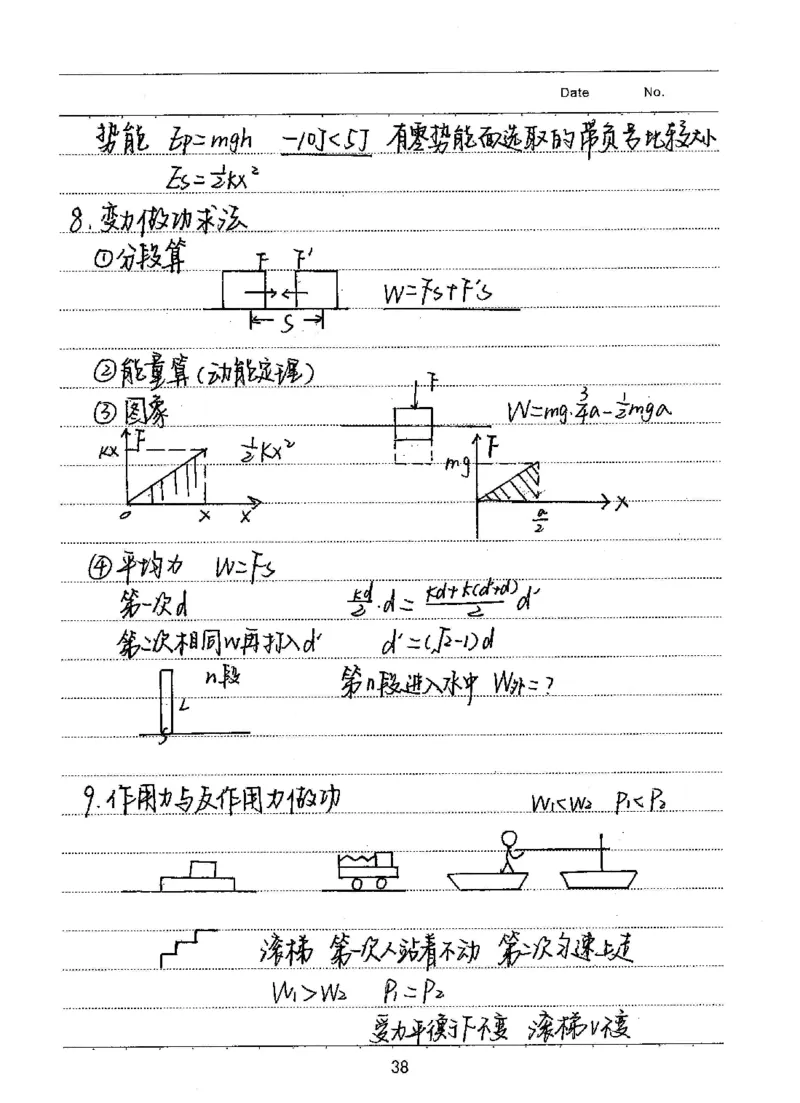 Date No.
势能 Ep=mgh -10J<5J 有零势能面选取的带负号比较大小
Es=½kx²
8.变力做功求法
①分段算 F F'
W=Fs+F's
S
②能量算(动能定理)
F
③图象 W=mg·¾a-½mga
kx F ½kx² mg F
0 x x a/2 x
④平均力 W=Fs
第一次d kd/2·d=(kd+k(d'+d))/2 d'
第二次相同W再打入d' d'=(√2-1)d
n段 第n段进入水中 W外=?
L
S
9.作用力与反作用力做功 W₁<W₂ P₁<P₂
滚梯 第一次人站着不动 第二次匀速上走
W₁>W₂ P₁=P₂
受力平衡于F不变 滚梯V不变
38